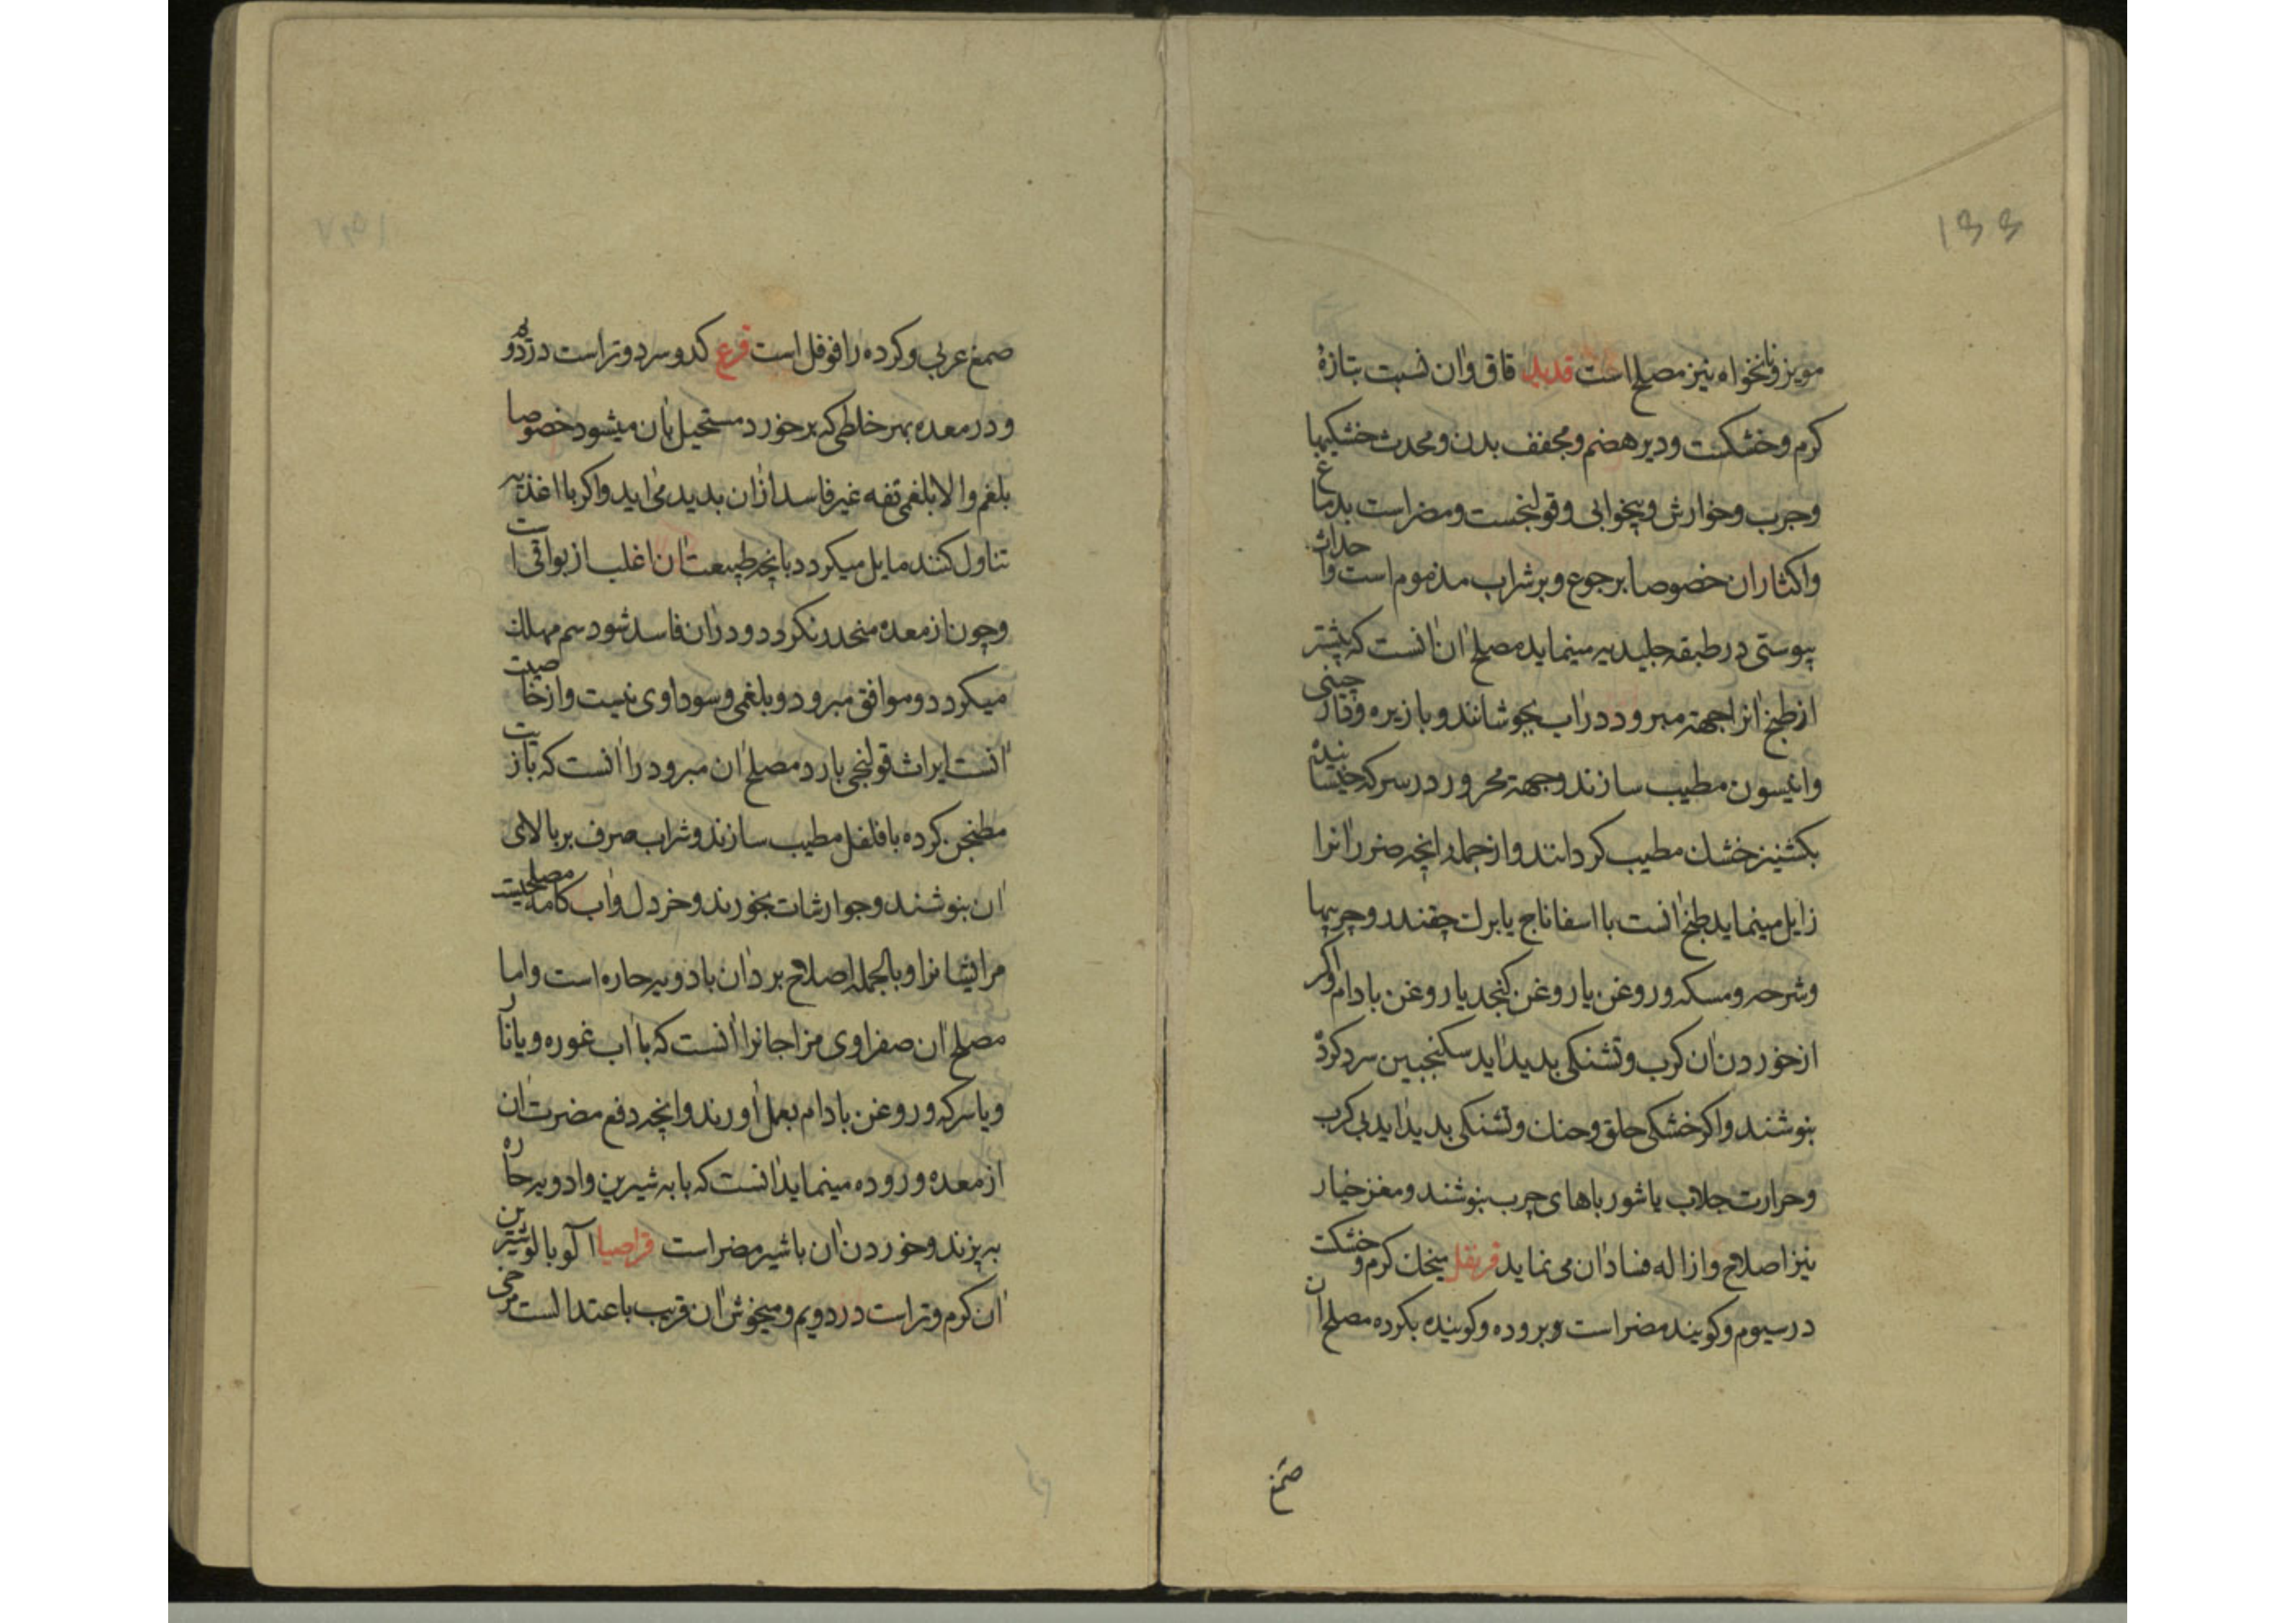 ۱۳۳
مویز و نانخواه نیز مصلح است قدید قاق وان نسبت بتازهٔ
کرم وخشکت ودیر هضم ومجفف بدن ومحدث خشکیها
وجرب وخوارش وبیخوابی وقولنجست ومضر است بدماغ
واکثار ان خصوصا بر جوع وبر شراب مذموم است واحداث
پیوستی در طبقه جلیدیه مینماید مصلح ان انست که پیشتر
از طبخ انرا جهته مبرود در اب بجوشانند وبا زیره ودارچینی
وانیسون مطیب سازند وجهته محرور در سرکه خیسانیده
بکشنیز خشک مطیب کردانند واز جمله انچه ضرر انرا
زایل مینماید طبخ انست با اسفاناج یا برک چقندر وچربیها
ومسکه وروغن یا روغن کنجد یا روغن بادام واکر
از خوردن ان کرب وتشنکی بدید اید سکنجبین سرد کردهٔ
بنوشند واکر خشکی حلق وحنک وتشنکی بدید اید بی کرب
وحرارت جلاب یا شورباهای چرب بنوشند ومغز خیار
نیز اصلاح وازاله فساد ان می نماید قرنفل میخک کرم وخشکت
در سیوم وکویند مضر است وبروده وکوینده بکرده مصلح ان
صمغ
صمغ عربی وکرده را فوفل است قرع کدو سرد وتر است در
ودر معده بهر خلطی که بر خورد مستحیل بان میشود خصوصا
بلغم والا بلغمی تفه غیر فاسد از ان بدید می اید واکر با اغذیه
تناول کنند مایل میکردد بانچه طبیعت ان اغلب از بواقی است
وچون از معده منحدر نکردد ودر ان فاسد شود سم مهلک
میکردد وموافق مبرود وبلغمی وسوداوی نیست واز خاصیت
انست ایراث قولنجی بارد مصلح ان مبرود را انست که بازیت
مطنجن کرده با فلفل مطیب سازند وشراب صرف بر بالای
ان بنوشند وجوارشات بخورند وخردل واب کامه مصلحیت
مر ایشانرا وبالجمله اصلاح برد ان بادویه حاره است واما
مصلح ان صفراوی مزاجانرا انست که با اب غوره ویا نار
ویا سرکه وروغن بادام بعمل اورند وانچه دفع مضرت ان
از معده وروده مینماید انست که با به شیرین وادویه حاره
به پزند وخوردن ان با شیر مضر است قراصیا آلوبالو شیرین
ان کرم وتر است در دویم ومیخوش ان قریب باعتدالست